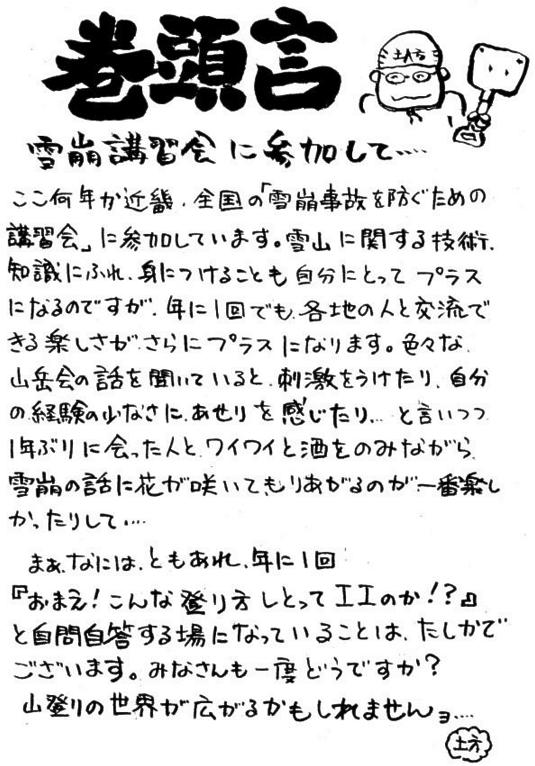 巻頭言
土方
雪崩講習会に参加して‥‥
ここ何年か近畿、全国の「雪崩事故を防ぐための
講習会」に参加しています。雪山に関する技術、
知識にふれ、身につけることも自分にとってプラス
になるのですが、年に1回でも、各地の人と交流で
きる楽しさが、さらにプラスになります。色々な
山岳会の話を聞いていると、刺激をうけたり、自分
の経験の少なさに、あせりを感じたり… と言いつつ
1年ぶりに会った人と、ワイワイと酒をのみながら、
雪崩の話に花が咲いて、もりあがるのが、一番楽し
かったりして‥‥
まぁ、なには、ともあれ、年に1回
『おまえ!こんな登り方しとってエエのか!?』
と自問自答する場になっていることは、たしかで
ございます。みなさんも一度どうですか?
山登りの世界が広がるかもしれませんョ‥‥
土方